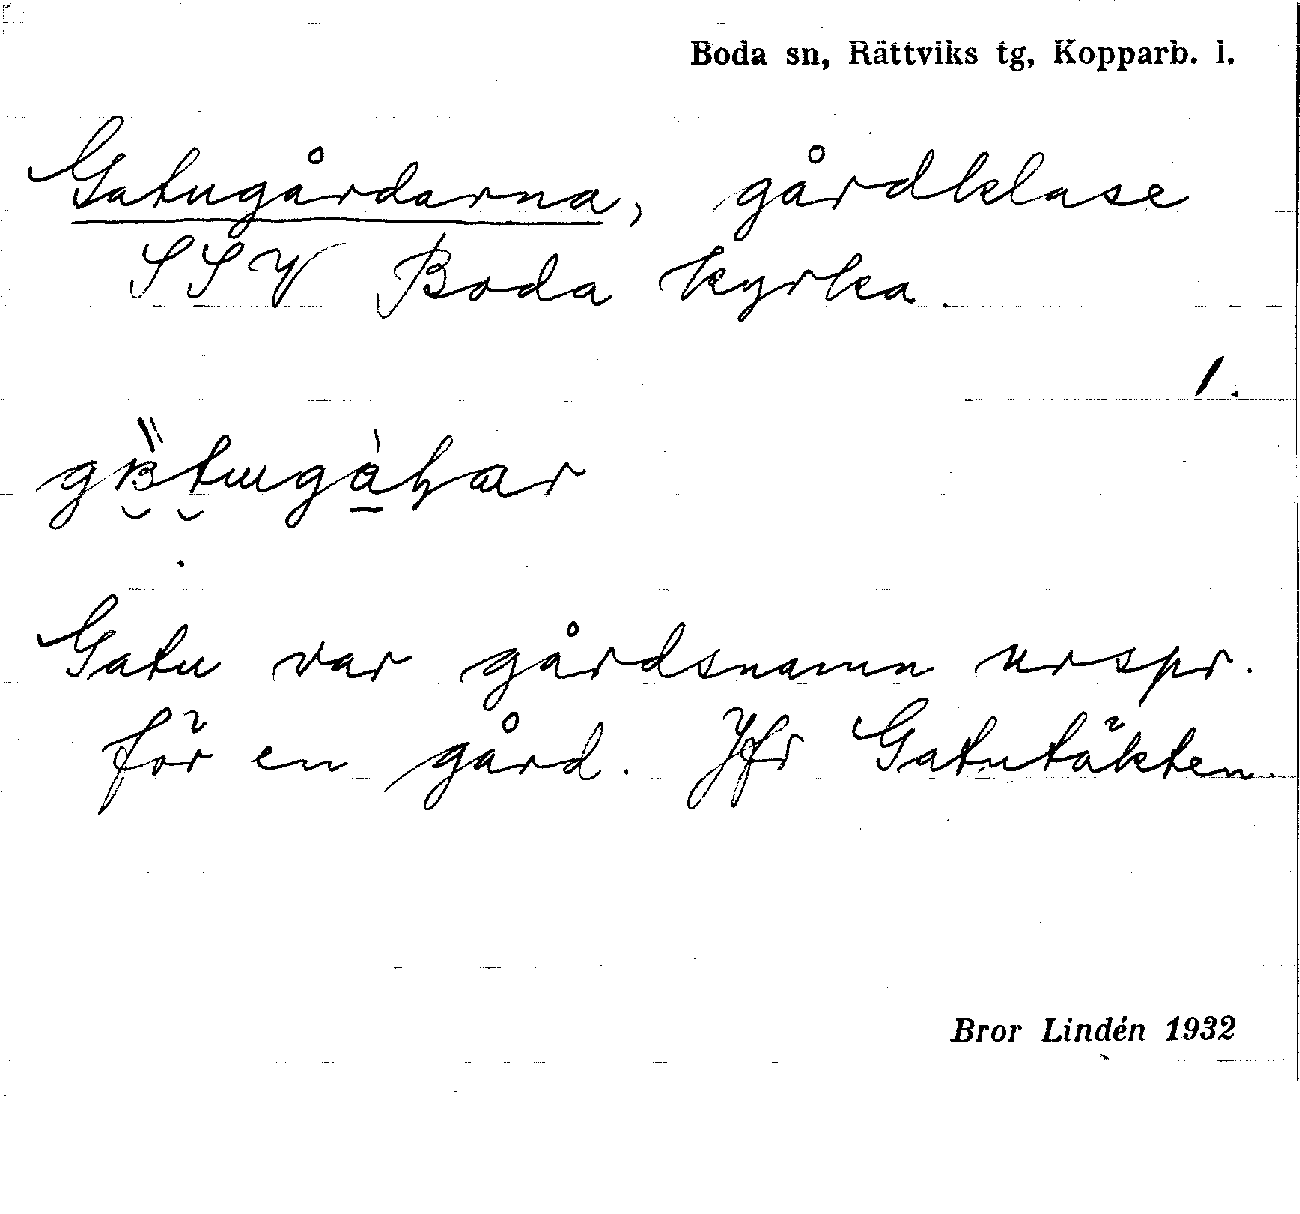 Boda sn, Rättviks tg, Kopparb. l.
Gatugårdarna, gårdklase
SSV Boda kyrka.
1.
Gatu var gårdsnamn urspr.
för en gård. Jfr Gatutäkten.
Bror Lindén 1932